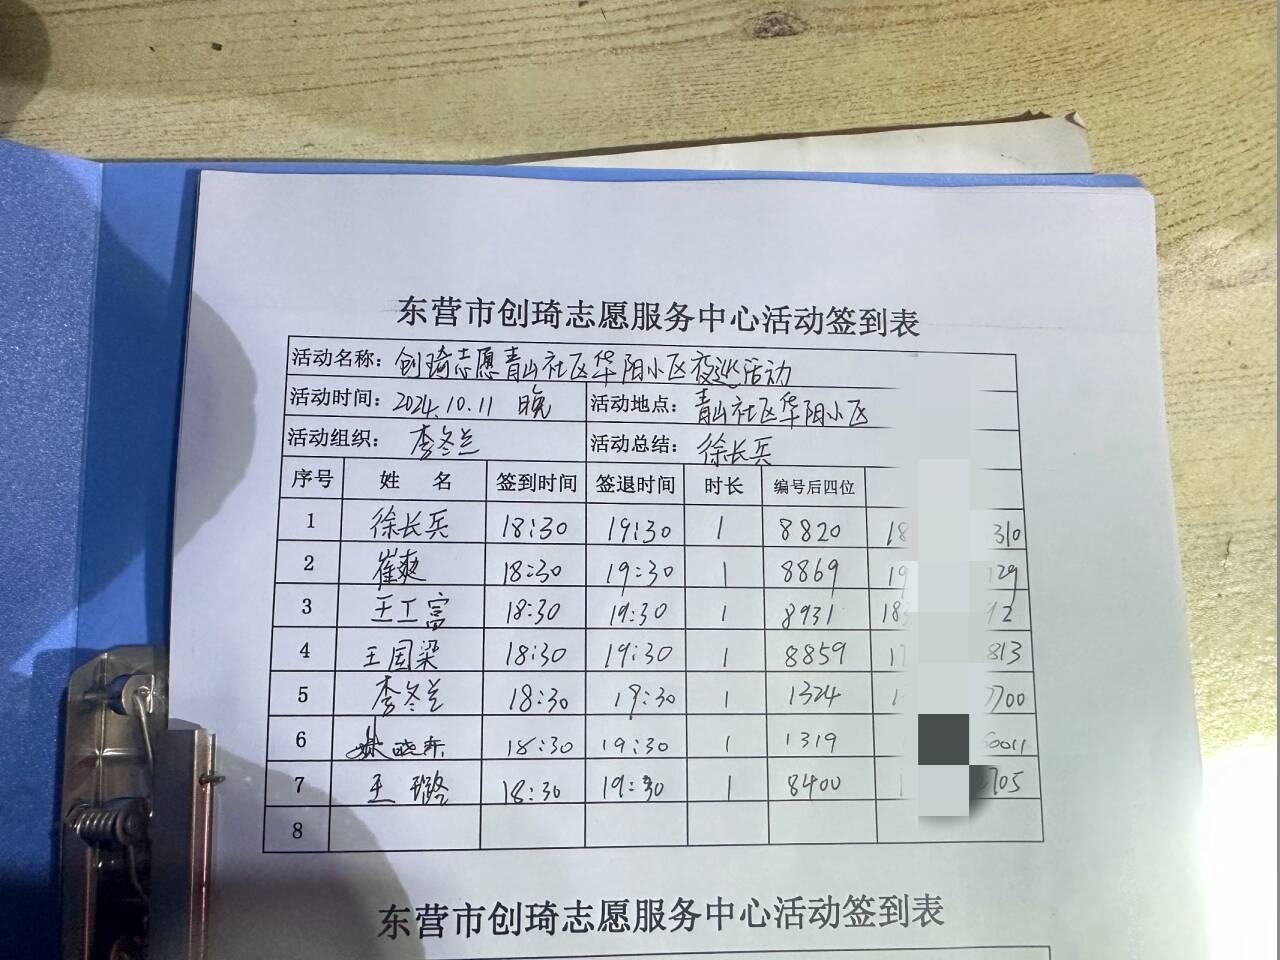 东营市创琦志愿服务中心活动签到表
活动名称: 创琦志愿青山社区华阳小区夜巡活动
活动时间: 2024.10.11 晚 活动地点: 青山社区华阳小区
活动组织: 李冬兰 活动总结: 徐长兵
序号 姓 名 签到时间 签退时间 时长 编号后四位
1 徐长兵 18:30 19:30 1 8820 18 310
2 崔爽 18:30 19:30 1 8869 19 129
3 王工富 18:30 19:30 1 8931 18 12
4 王国梁 18:30 19:30 1 8859 17 813
5 李冬兰 18:30 19:30 1 1324 1 7700
6 晓东 18:30 19:30 1 1319 1 60011
7 王璐 18:30 19:30 1 8400 1 2705
8
东营市创琦志愿服务中心活动签到表